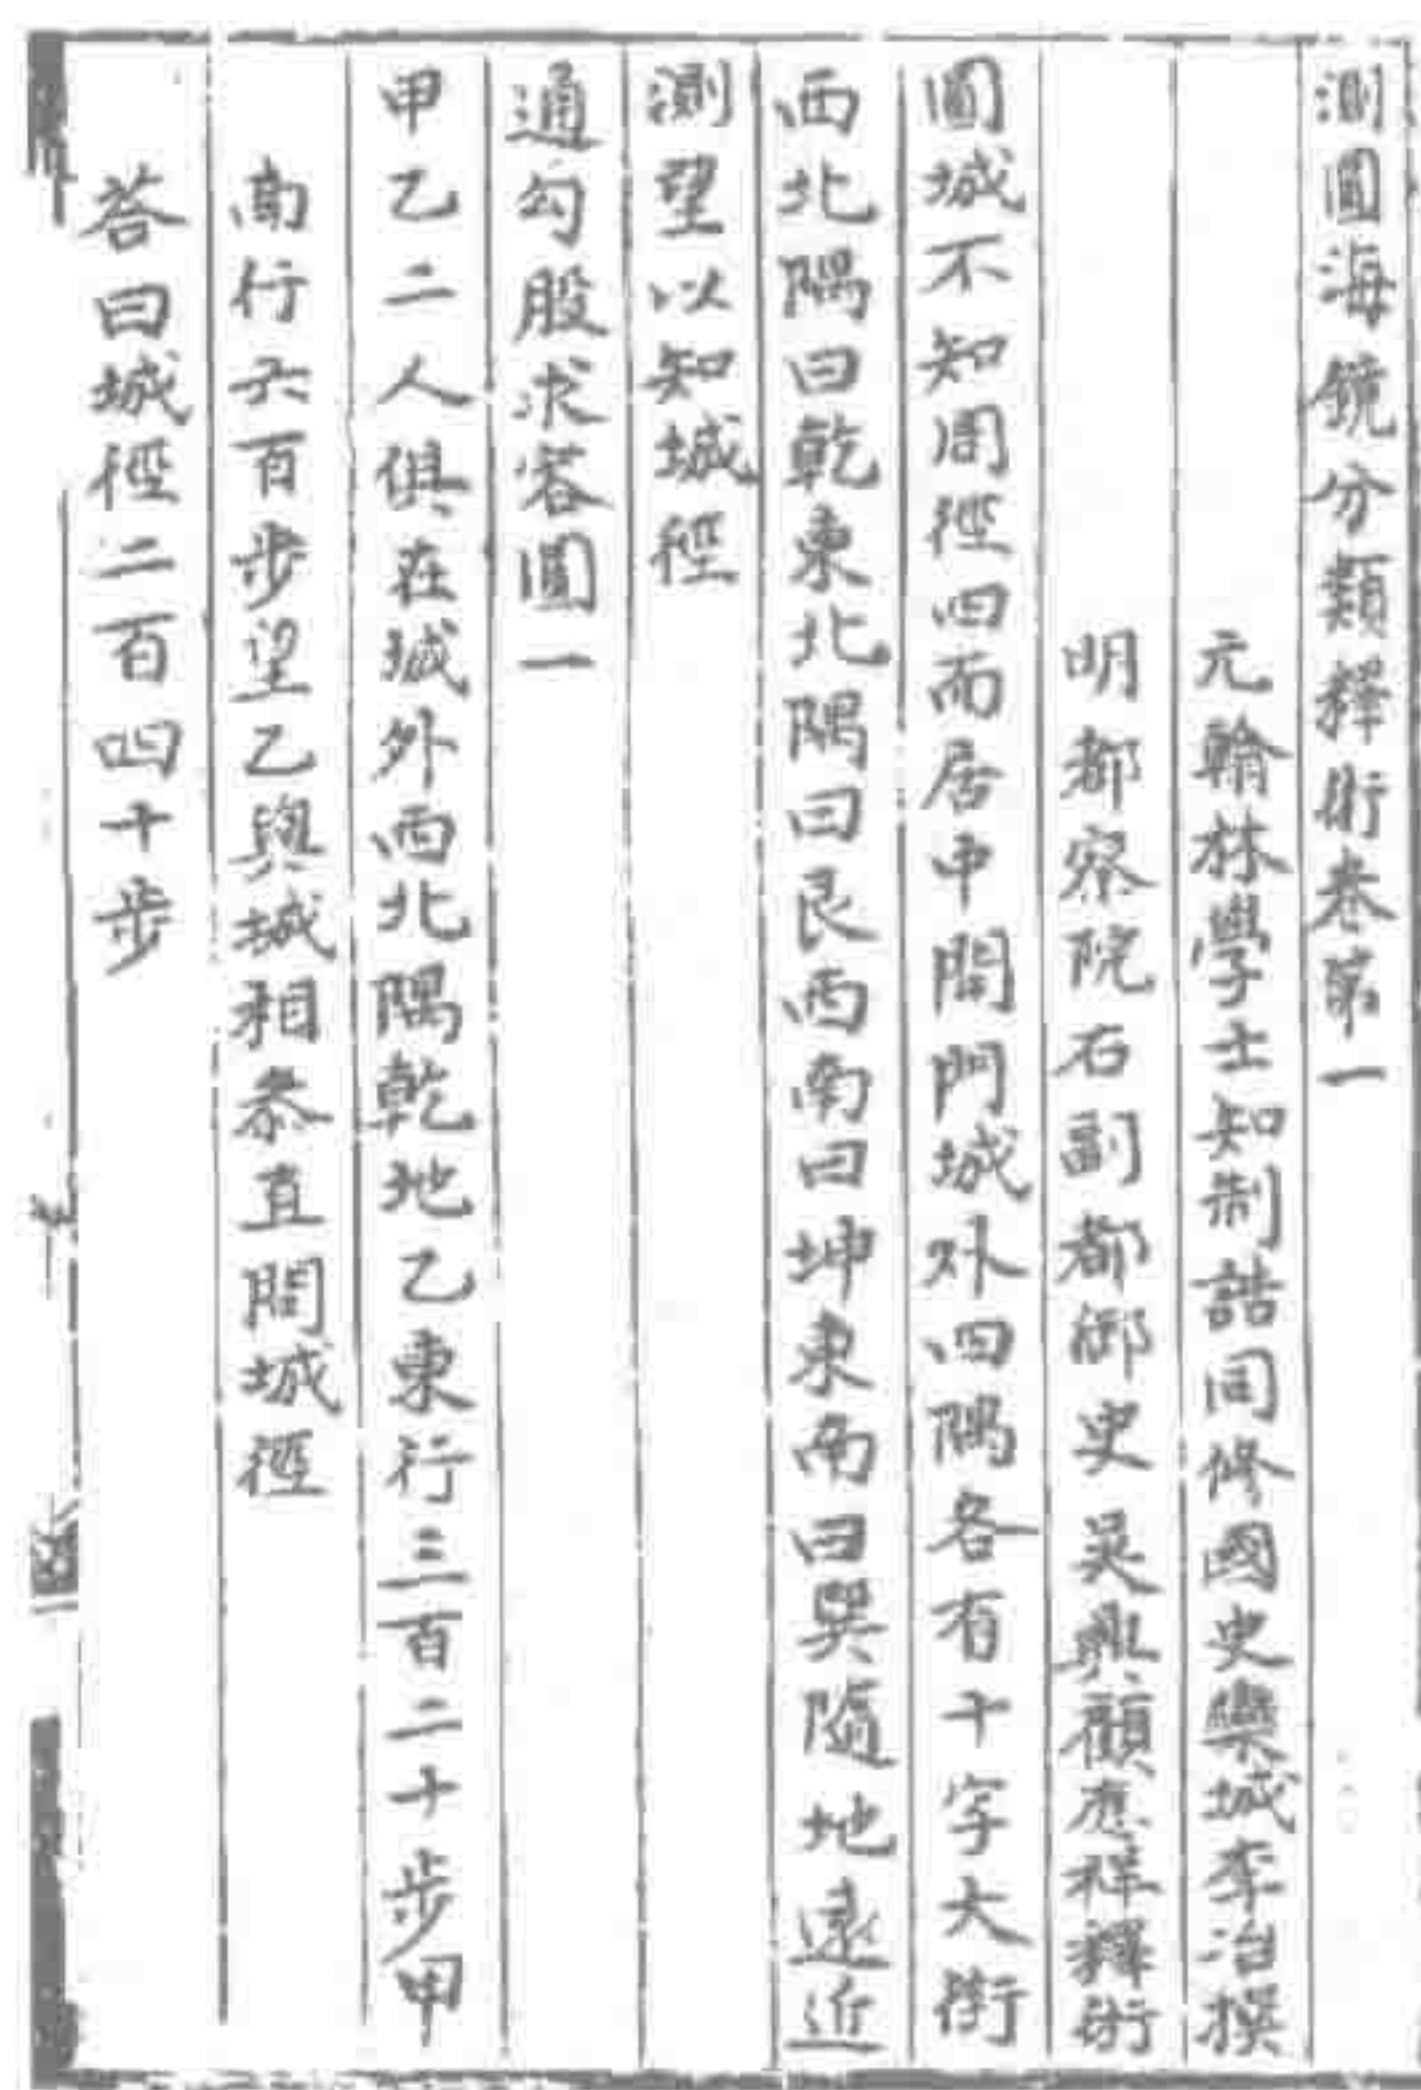 測圓海鏡分類釋術卷第一
元翰林學士知制誥同修國史欒城李冶撰
明都察院右副都御史吳興顧應祥釋術
圓城不知周徑四面居中開門城外四隅各有十字大街
西北隅曰乾東北隅曰艮西南曰坤東南曰巽隨地遠近
測望以知城徑
通勾股求容圓一
甲乙二人俱在城外西北隅乾地乙東行三百二十步甲
南行六百步望乙與城相叅直問城徑
荅曰城徑二百四十步